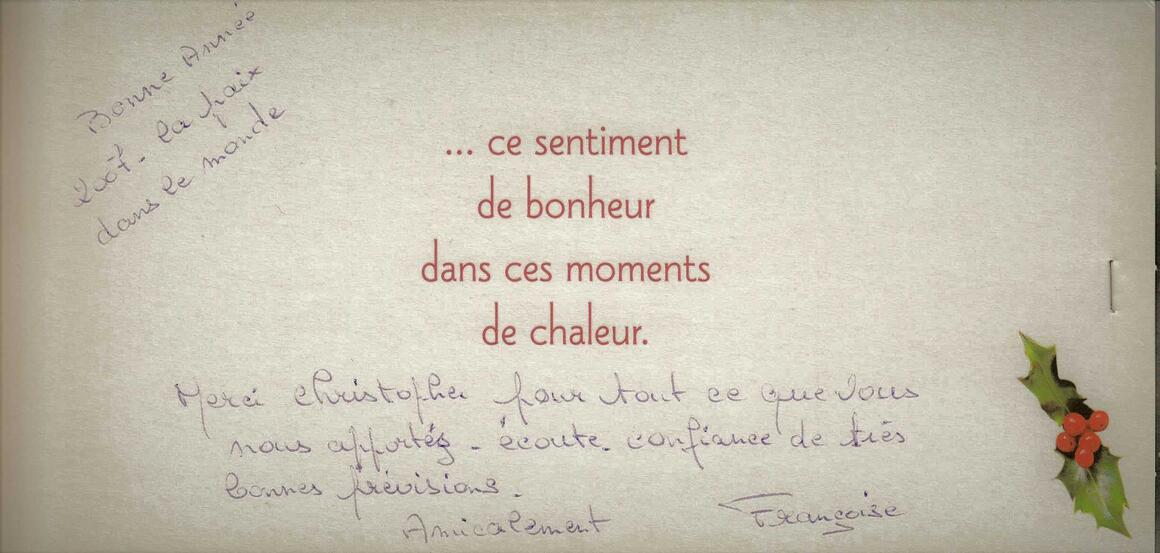 Bonne Année
2007 - la paix
dans le monde
... ce sentiment
de bonheur
dans ces moments
de chaleur.
Merci Christopher pour tout ce que vous
nous apportés - écoute - confiance de très
bonnes prévisions.
Amicalement Françoise